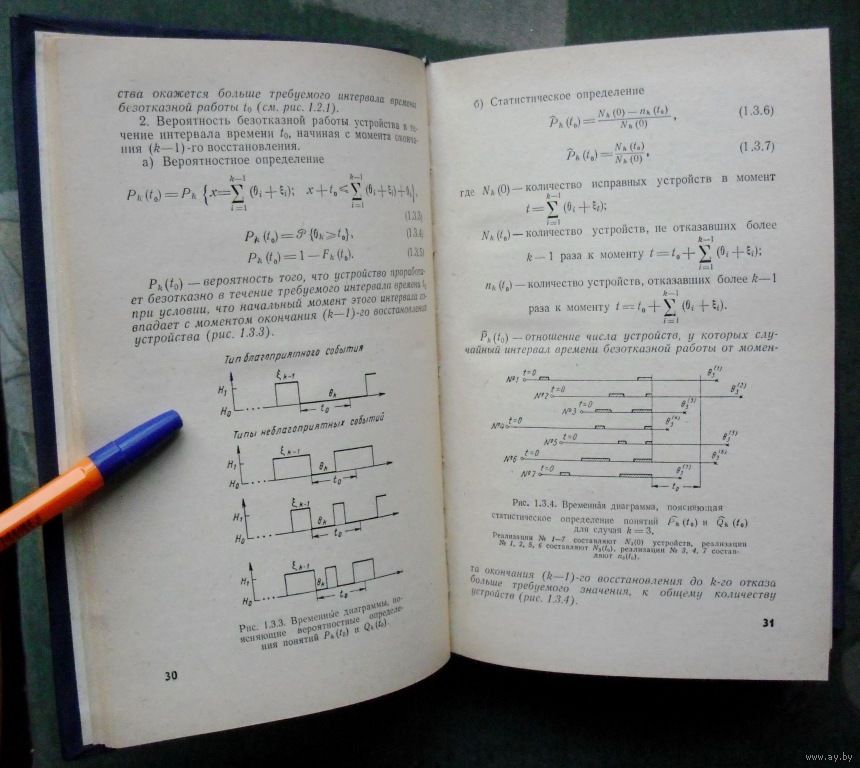 ства окажется больше требуемого интервала времени
безотказной работы t₀ (см. рис. 1.2.1).
2. Вероятность безотказной работы устройства в те-
чение интервала времени t₀, начиная с момента оконча-
ния (k—1)-го восстановления.
а) Вероятностное определение
Pₖ(t₀) = Pₖ { x = ∑ᵢ₌₁ᵏ⁻¹ (θᵢ + ξᵢ); x + t₀ ⩽ ∑ᵢ₌₁ᵏ⁻¹ (θᵢ + ξᵢ) + θₖ },
(1.3.3)
Pₖ(t₀) = 𝒫 {θₖ ⩾ t₀}, (1.3.4)
Pₖ(t₀) = 1 — Fₖ(t₀). (1.3.5)
Pₖ(t₀) — вероятность того, что устройство проработа-
ет безотказно в течение требуемого интервала времени t₀
при условии, что начальный момент этого интервала со-
впадает с моментом окончания (k—1)-го восстановления
устройства (рис. 1.3.3).
Тип благоприятного события
H₁ ξₖ₋₁
H₀ θₖ
t₀
Типы неблагоприятных событий
H₁ ξₖ₋₁
H₀ θₖ
t₀
H₁ ξₖ₋₁
H₀ θₖ
t₀
H₁ ξₖ₋₁
H₀ θₖ
t₀
Рис. 1.3.3. Временные диаграммы, по-
ясняющие вероятностные определе-
ния понятий Pₖ(t₀) и Qₖ(t₀)
30
б) Статистическое определение
P̂ₖ(t₀) = (Nₖ(0) — nₖ(t₀)) / Nₖ(0), (1.3.6)
P̂ₖ(t₀) = Nₖ(t₀) / Nₖ(0), (1.3.7)
где Nₖ(0) — количество исправных устройств в момент
t = ∑ᵢ₌₁ᵏ⁻¹ (θᵢ + ξᵢ);
Nₖ(t₀) — количество устройств, не отказавших более
k — 1 раза к моменту t = t₀ + ∑ᵢ₌₁ᵏ⁻¹ (θᵢ + ξᵢ);
nₖ(t₀) — количество устройств, отказавших более k—1
раза к моменту t = t₀ + ∑ᵢ₌₁ᵏ⁻¹ (θᵢ + ξᵢ).
P̂ₖ(t₀) — отношение числа устройств, у которых слу-
чайный интервал времени безотказной работы от момен-
№1 t=0 θ₃⁽¹⁾
№2 t=0 θ₃⁽²⁾
№3 t=0 θ₃⁽³⁾
№4 t=0 θ₃⁽⁴⁾
№5 t=0 θ₃⁽⁵⁾
№6 t=0 θ₃⁽⁶⁾
№7 t=0 θ₃⁽⁷⁾
t₀
Рис. 1.3.4. Временная диаграмма, поясняющая
статистическое определение понятий P̂ₖ(t₀) и Q̂ₖ(t₀)
для случая k = 3.
Реализации № 1—7 составляют N₃(0) устройств, реализации
№ 1, 2, 5, 6 составляют N₃(t₀), реализации № 3, 4, 7 состав-
ляют n₃(t₀).
та окончания (k—1)-го восстановления до k-го отказа
больше требуемого значения, к общему количеству
устройств (рис. 1.3.4).
31
www.ay.by